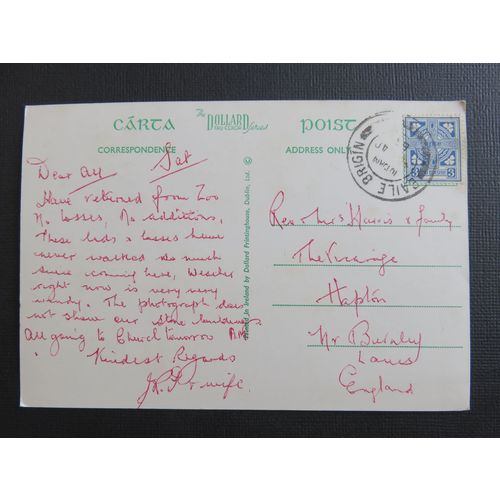 CÁRTA
The
DOLLARD
TRU-COLOR Series
POIST
CORRESPONDENCE
ADDRESS ONLY
BAILE BRIGÍN
3 3
© Printed in Ireland by Dollard Printinghouse, Dublin, Ltd.
Dear All Sat
Have returned from Zoo
No losses, No additions,
These lads & lasses have
never walked so much
since coming here, Weather
right now is very very
windy. The photograph does
not show our stone
All going to Church tomorrow
Kindest Regards
& wife.
Rev & Mrs Harris & family
The Vicarage
Hapton
Nr Burnley
Lancs
England